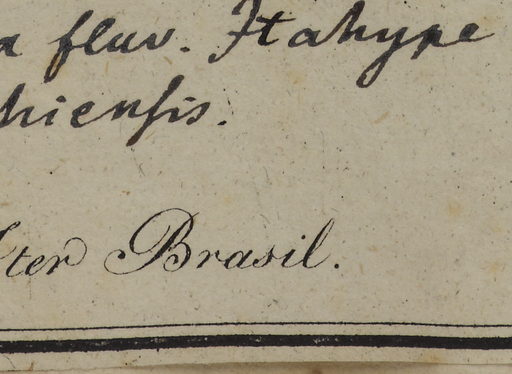 a fluv. Itahype
hiensis.
Iter Brasil.